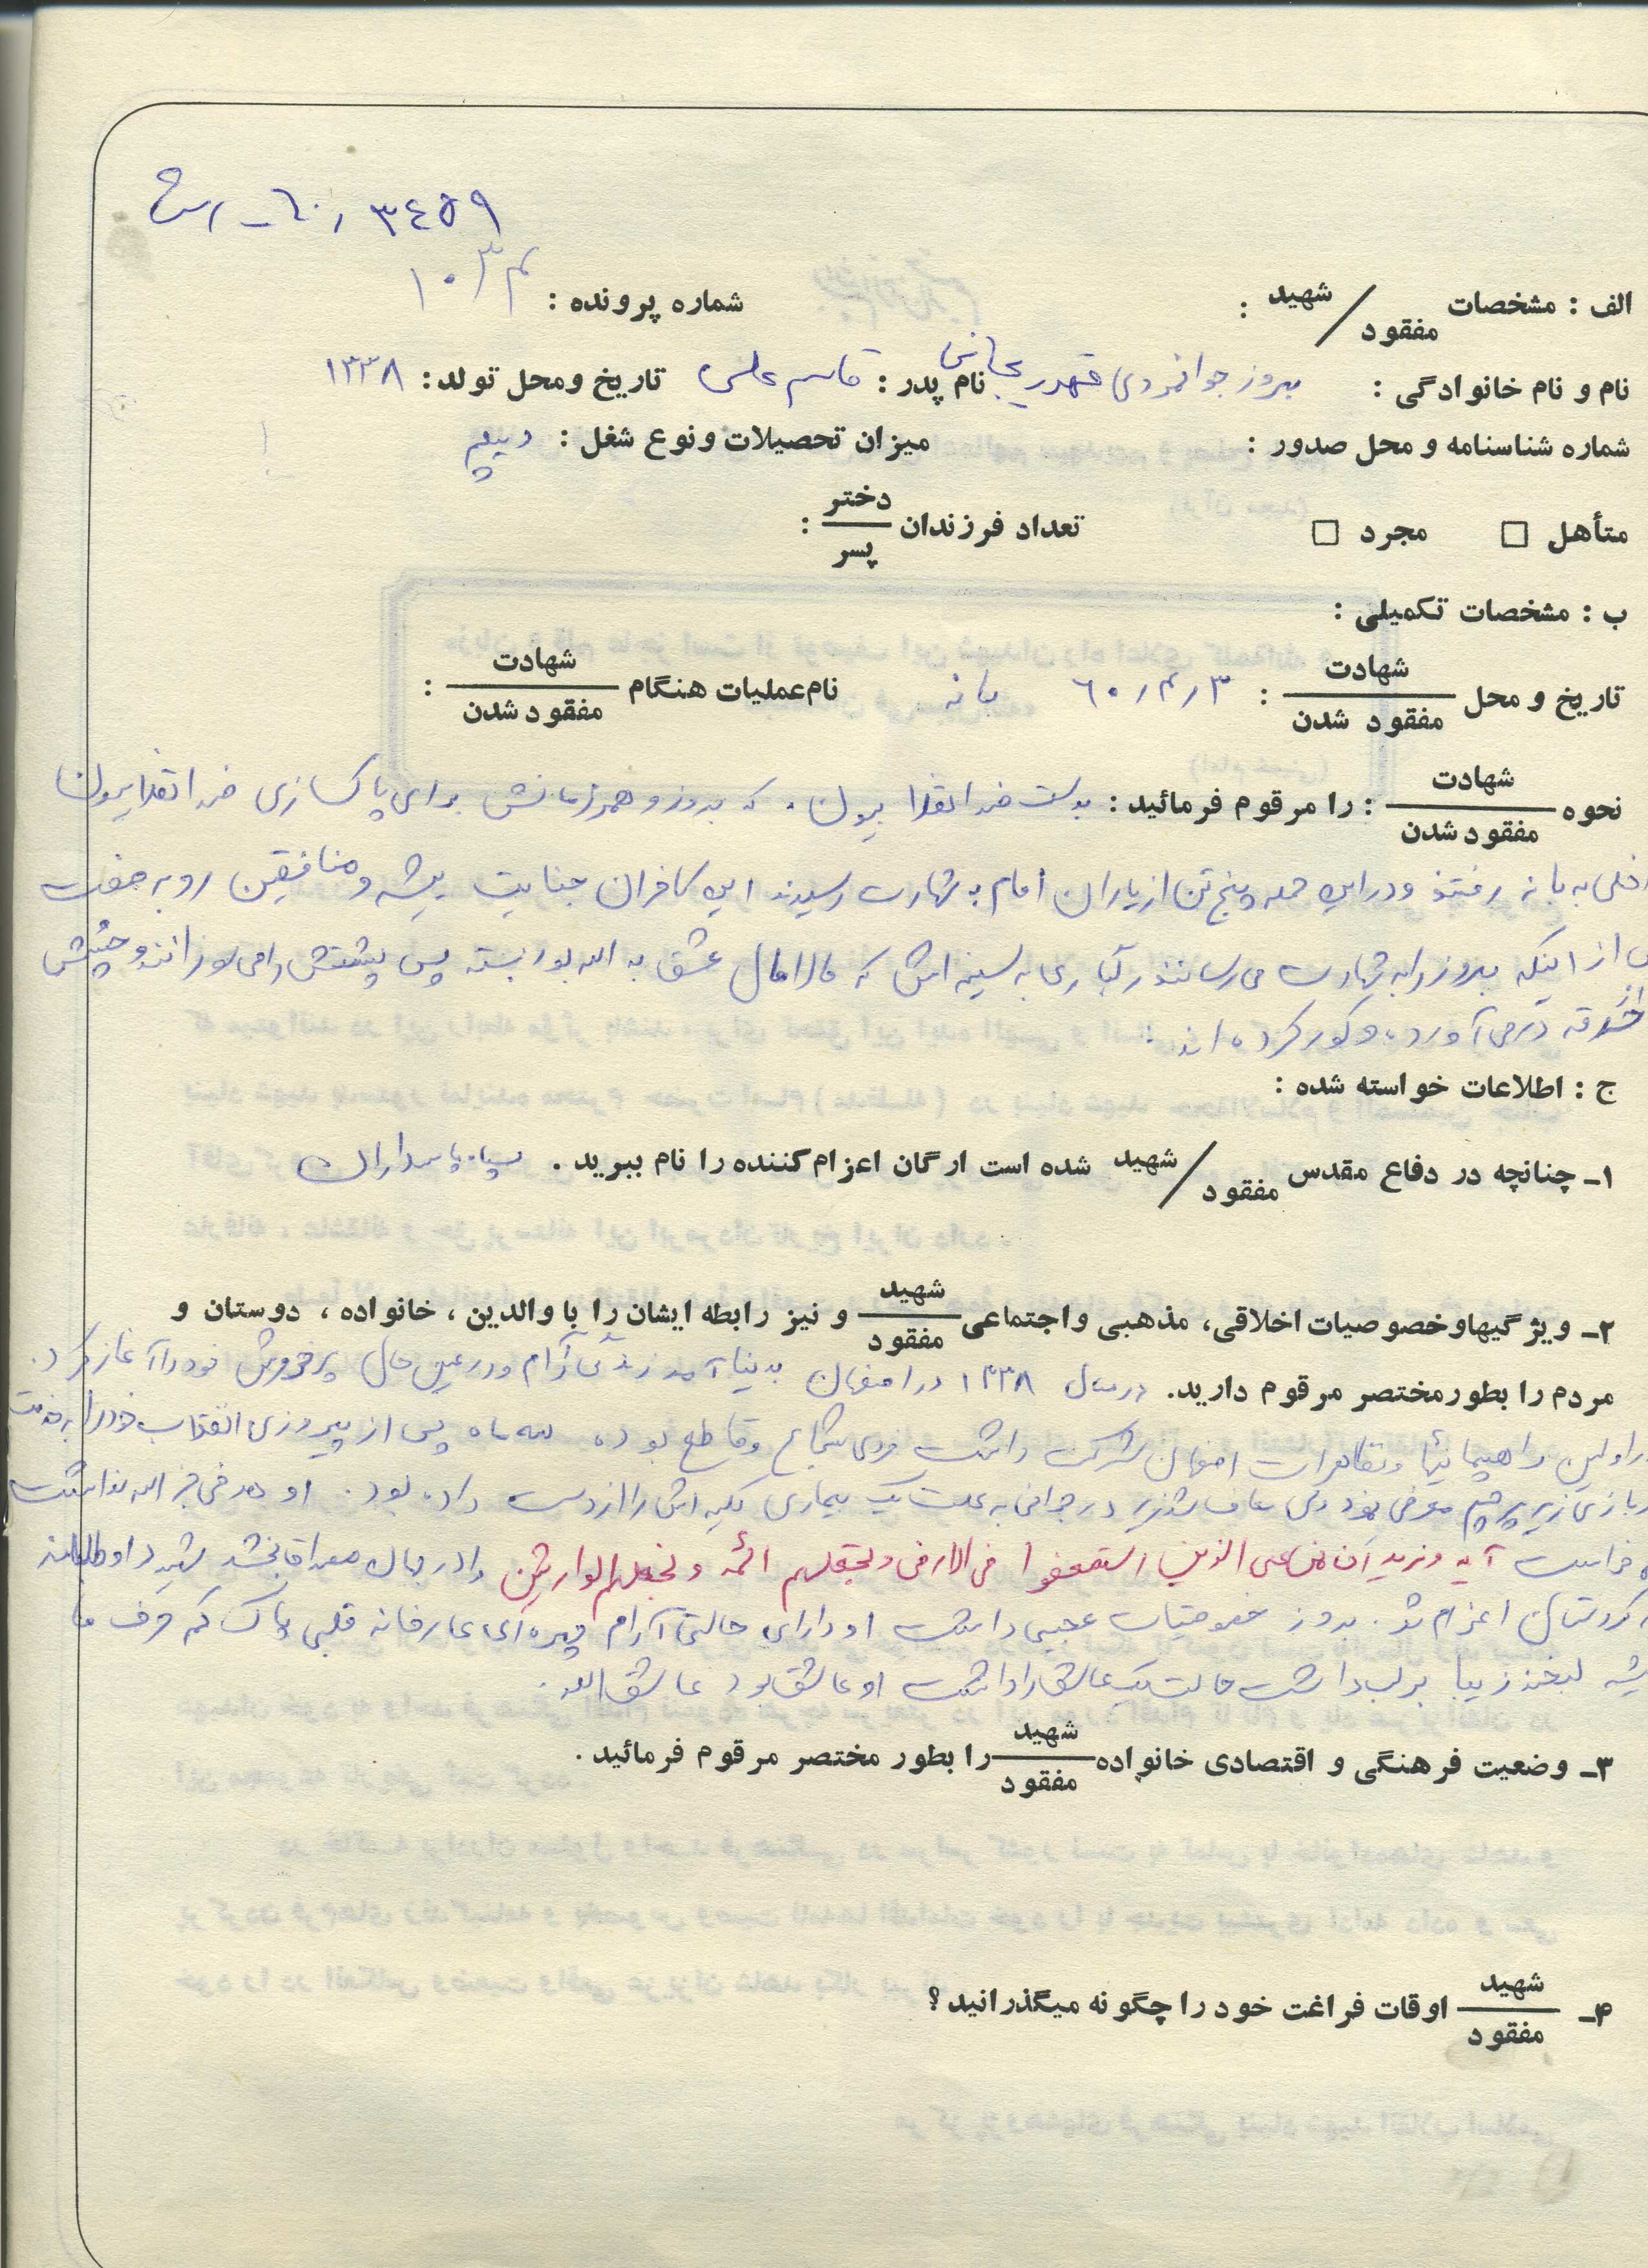 ۳٤٥٩
الف : مشخصات شهید / مفقود : شماره پرونده : ۱۰۳۳
نام و نام خانوادگی : بهروز جوانمردی قهدریجانی نام پدر : قاسم علی تاریخ ومحل تولد : ۱۳۳۸
شماره شناسنامه و محل صدور : میزان تحصیلات ونوع شغل : دیپلم
متأهل □ مجرد □ تعداد فرزندان دختر / پسر :
ب : مشخصات تکمیلی :
تاریخ و محل شهادت / مفقود شدن : ۶۰/۴/۳ بانه نام عملیات هنگام شهادت / مفقود شدن :
نحوه شهادت / مفقود شدن : را مرقوم فرمائید : بدست ضد انقلابیون . که بهروز و همرزمانش برای پاکسازی ضد انقلابیون
داخلی به بانه رفتند و در این حمله پنج تن از یاران امام به شهادت رسیدند این کافران جنایت پیشه و منافقین روبه صفت
از اینکه بهروز را به شهادت می رسانند رگباری به سینه اش که مالامال عشق به الله بود بسته پس پشتش را می سوزانند و چشمش
از حدقه در می آورده و کور کرده اند .
ج : اطلاعات خواسته شده :
۱ـ چنانچه در دفاع مقدس شهید / مفقود شده است ارگان اعزام کننده را نام ببرید . سپاه پاسداران
۲ـ ویژگیهاوخصوصیات اخلاقی، مذهبی واجتماعی شهید / مفقود و نیز رابطه ایشان را با والدین ، خانواده ، دوستان و
مردم را بطور مختصر مرقوم دارید. در سال ۱۳۳۸ در اصفهان بدنیا آمد زندگی آرام و در عین حال پر خروش خود را آغاز کرد .
در اولین راهپیمائیها و تظاهرات اصفهان شرکت داشت مردی شجاع و قاطع بوده سه ماه پس از پیروزی انقلاب خود را به خدمت
سربازی زیر پرچم معرفی نمود ولی معاف شد زیرا در جوانی به علت یک بیماری کلیه اش را از دست داده بود . او هدفی جز الله نداشت
خواست آیه و نرید ان نمن علی الذین استضعفوا فی الارض و نجعلهم ائمه و نجعلهم الوارثین را در جهان مصداق بخشد داوطلبانه
به کردستان اعزام شد . بهروز خصوصیات عجیبی داشت او دارای حالتی آرام چهره ای عارفانه قلبی پاک کم حرف
لبخند زیبا بر لب داشت حالت یک عاشق را داشت او عاشق بود عاشق الله .
۳ـ وضعیت فرهنگی و اقتصادی خانواده شهید / مفقود را بطور مختصر مرقوم فرمائید .
۴ـ شهید / مفقود اوقات فراغت خود را چگونه میگذرانید ؟